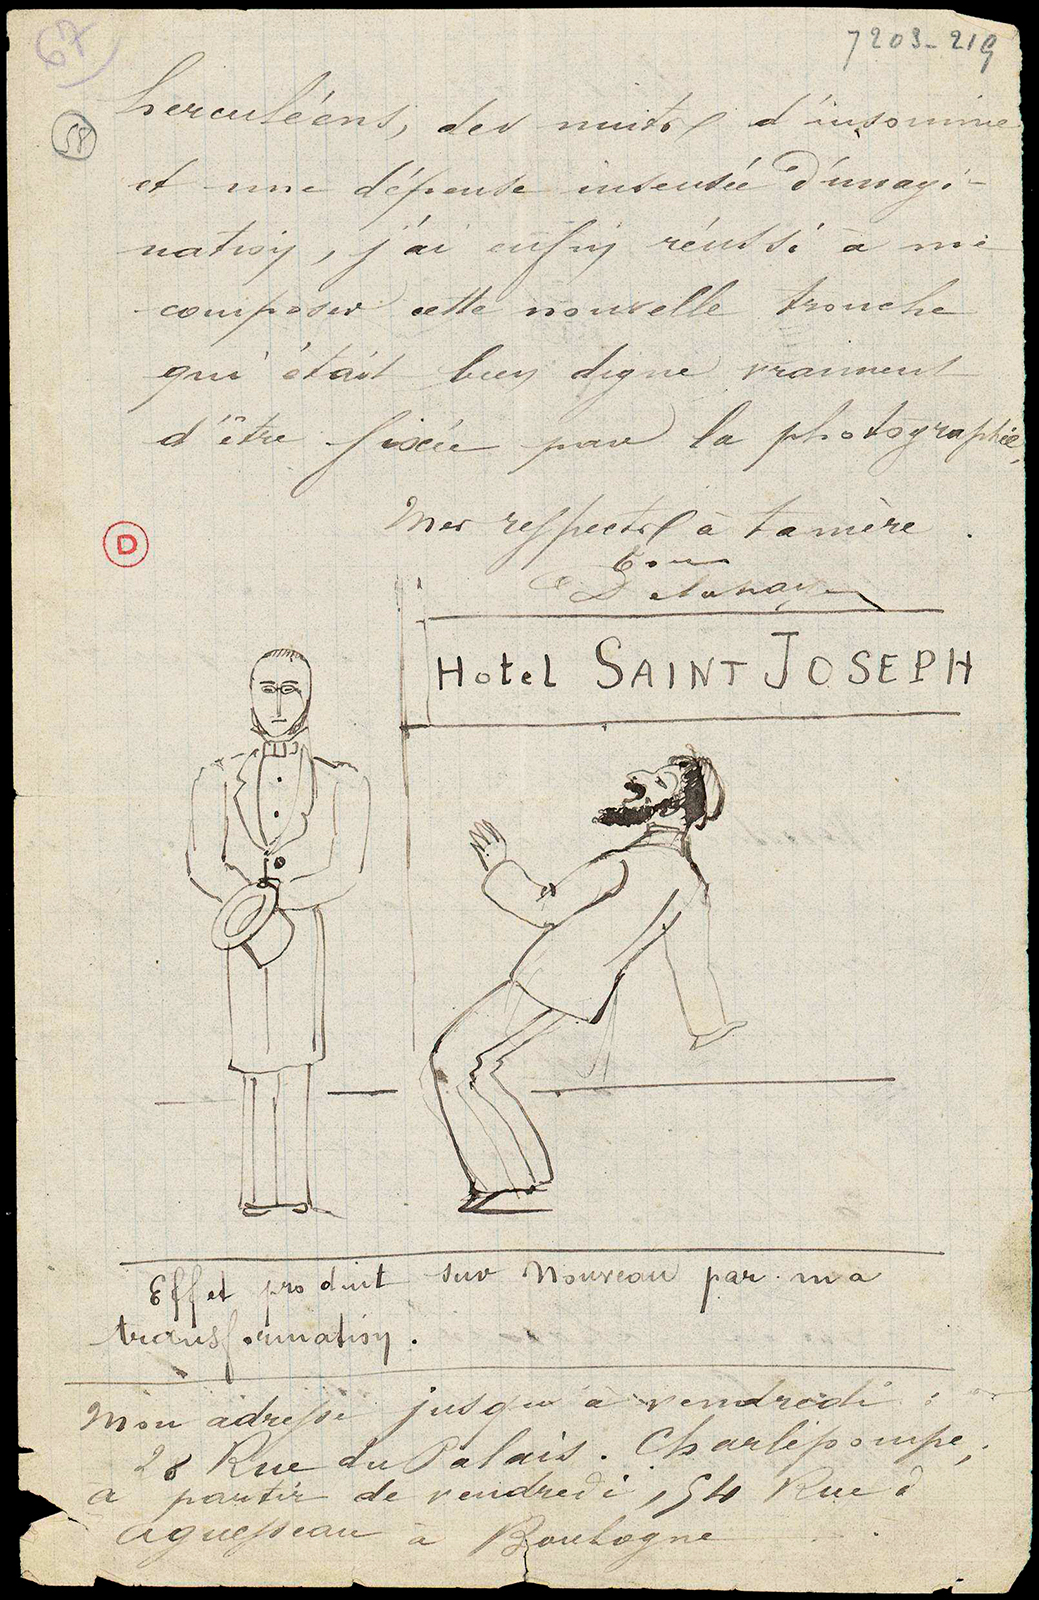 67
7203-219
58
herculéens, des nuits d'insomnie
et une dépense insensée d'imagi-
nation, j'ai enfin réussi à me
composer cette nouvelle tronche
qui était bien digne vraiment
d'être fixée par la photographie,
Mes respects à ta mère.
Ton
Delahaye
D
Hotel SAINT JOSEPH
Effet produit sur Nouveau par ma
transformation.
Mon adresse jusqu'à vendredi :
28 Rue du Palais. Charlepompe,
à partir de vendredi, 54 Rue d
aguesseau à Boulogne